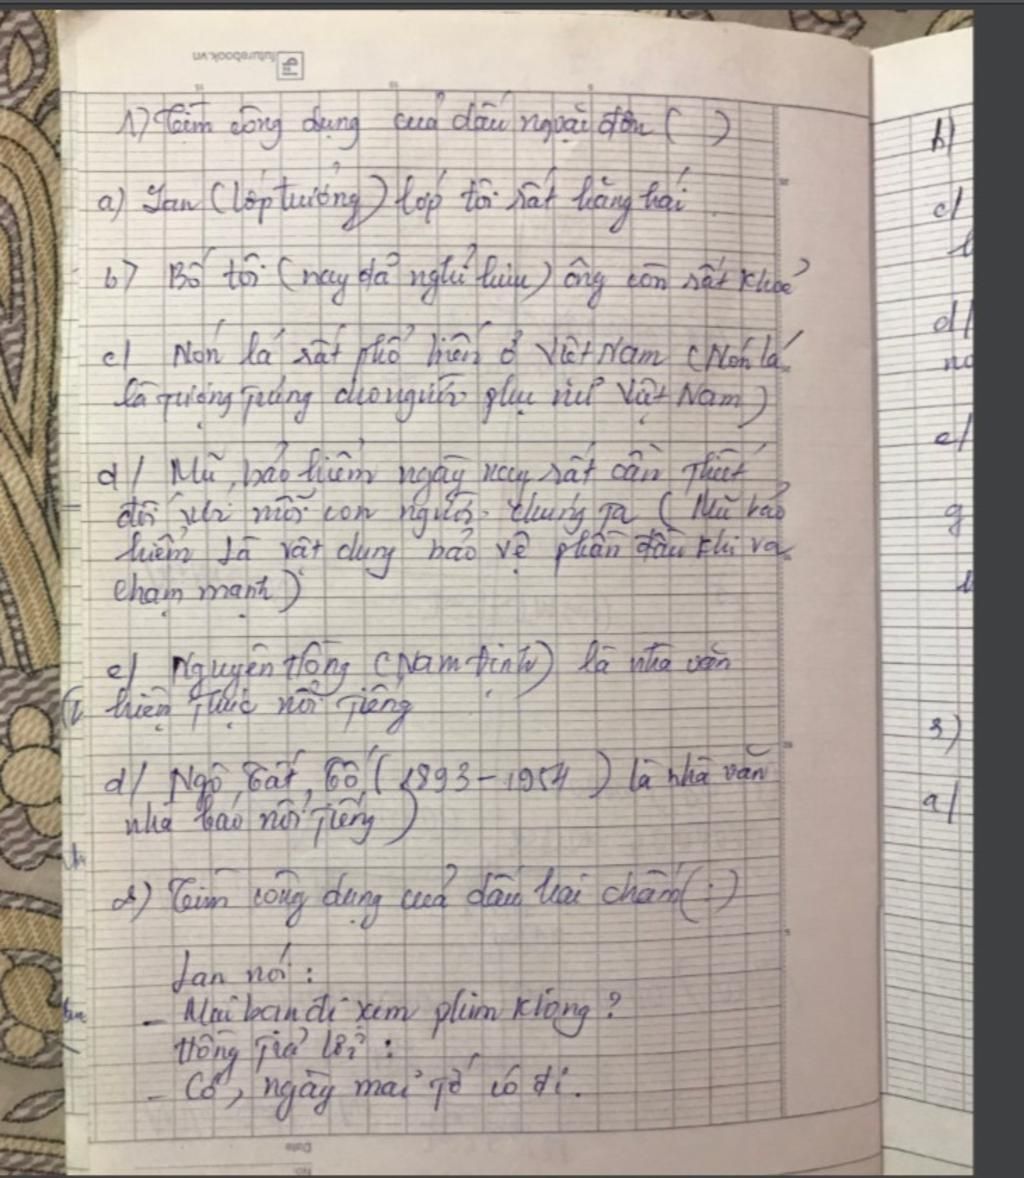 futurebook.vn
1) Tìm công dụng của dấu ngoặc đơn ( )
a) Lan (lớp trưởng) lớp tôi rất hăng hái
b) Bố tôi (nay đã nghỉ hưu) ông còn rất khoẻ
c/ Nón lá rất phổ biến ở Việt Nam (Nón lá
là tượng trưng cho người phụ nữ Việt Nam)
d/ Mũ bảo hiểm ngày nay rất cần thiết
đối với mỗi con người chúng ta (Mũ bảo
hiểm là vật dụng bảo vệ phần đầu khi va
chạm mạnh)
e/ Nguyên Hồng (Nam Định) là nhà văn
hiện thực nổi tiếng
d/ Ngô Tất Tố (1893-1954) là nhà văn
nhà báo nổi tiếng)
2) Tìm công dụng của dấu hai chấm (:)
Lan nói:
- Mai bạn đi xem phim không?
Hồng trả lời:
- Có, ngày mai tớ có đi.
Date
No.
b)
c/
d/
e/
g
3)
a/